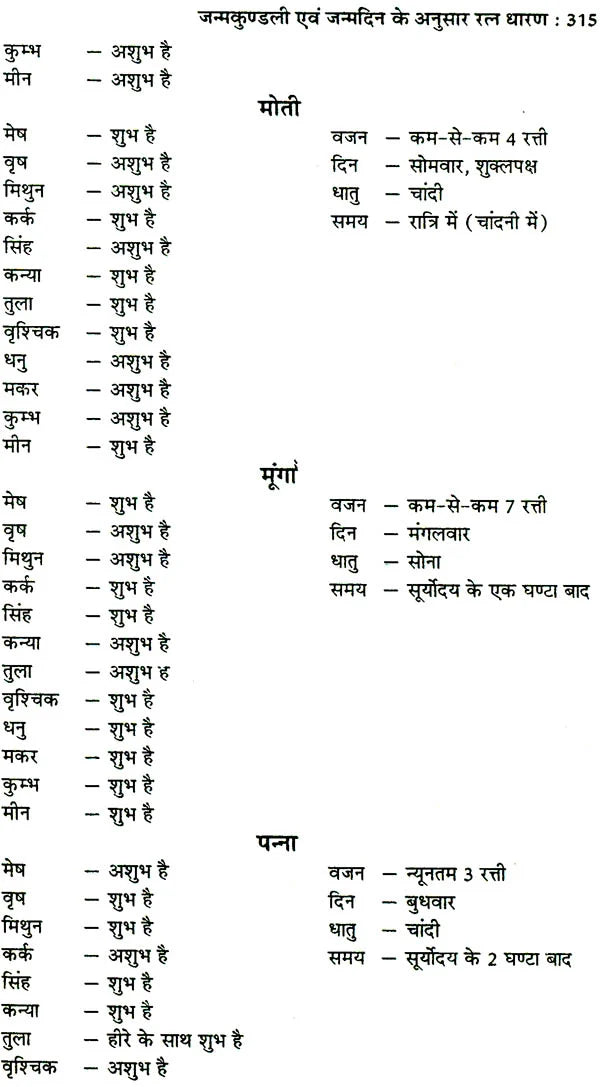 जन्मकुण्डली एवं जन्मदिन के अनुसार रत्न धारण : 315
कुम्भ – अशुभ है
मीन – अशुभ है
मोती
मेष – शुभ है वजन – कम-से-कम 4 रत्ती
वृष – अशुभ है दिन – सोमवार, शुक्लपक्ष
मिथुन – अशुभ है धातु – चांदी
कर्क – शुभ है समय – रात्रि में (चांदनी में)
सिंह – अशुभ है
कन्या – शुभ है
तुला – शुभ है
वृश्चिक – शुभ है
धनु – अशुभ है
मकर – अशुभ है
कुम्भ – अशुभ है
मीन – शुभ है
मूंगा
मेष – शुभ है वजन – कम-से-कम 7 रत्ती
वृष – अशुभ है दिन – मंगलवार
मिथुन – अशुभ है धातु – सोना
कर्क – शुभ है समय – सूर्योदय के एक घण्टा बाद
सिंह – शुभ है
कन्या – अशुभ है
तुला – अशुभ ह
वृश्चिक – शुभ है
धनु – शुभ है
मकर – शुभ है
कुम्भ – शुभ है
मीन – शुभ है
पन्ना
मेष – अशुभ है वजन – न्यूनतम 3 रत्ती
वृष – शुभ है दिन – बुधवार
मिथुन – शुभ है धातु – चांदी
कर्क – अशुभ है समय – सूर्योदय के 2 घण्टा बाद
सिंह – शुभ है
कन्या – शुभ है
तुला – हीरे के साथ शुभ है
वृश्चिक – अशुभ है